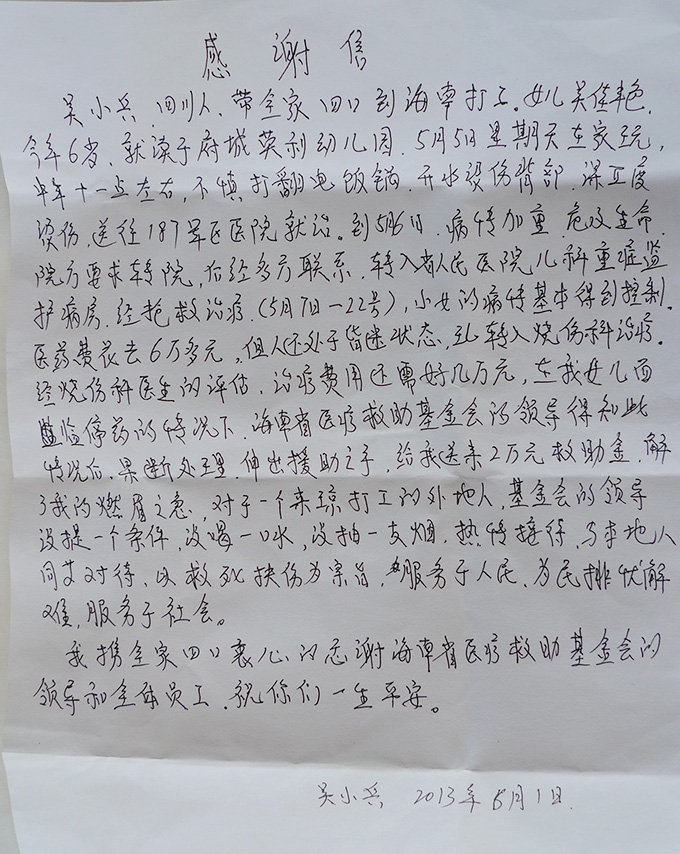 感谢信
吴小兵,四川人、带全家四口到海南打工。女儿吴佳艳,
今年6岁、就读于府城英利幼儿园,5月5日星期天在家玩,
中午十一点左右,不慎打翻电饭锅,开水烫伤背部,深Ⅱ度
烫伤,送往187军区医院就治。到5月6日,病情加重,危及生命,
院方要求转院,后经多方联系,转入省人民医院儿科重症监
护病房,经抢救治疗(5月7日—22号),小女的病情基本得到控制。
医药费花去6万多元,但人还处于昏迷状态,又转入烧伤科治疗。
经烧伤科医生的评估,治疗费用还需好几万元,在我女儿面
临停药的情况下,海南省医疗救助基金会的领导得知此
情况后,果断处理,伸出援助之手,给我送来2万元救助金,解
了我的燃眉之急,对于一个来琼打工的外地人,基金会的领导
没提一个条件,没喝一口水,没抽一支烟,热情接待,与本地人
同等对待,以救死扶伤为宗旨,服务于人民,为民排忧解
难,服务于社会。
我携全家四口衷心的感谢海南省医疗救助基金会的
领导和全体员工,祝你们一生平安。
吴小兵 2013年6月1日.